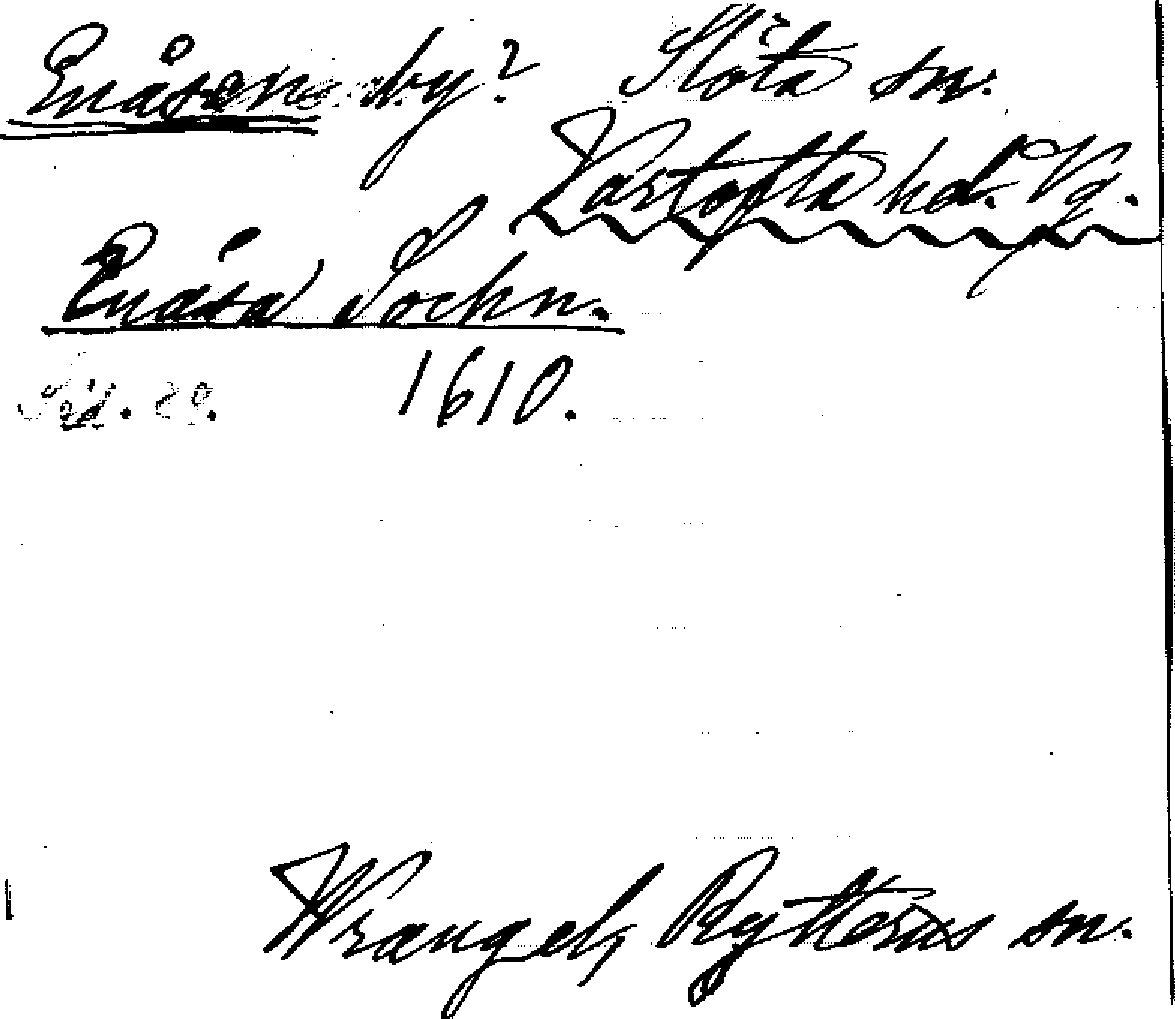 Enåsens by? Slöta sn.
Vartofta hd. Vg.
Enåsa Sochn.
Sid. 29. 1610.
Wrangel, Rytterns sn.